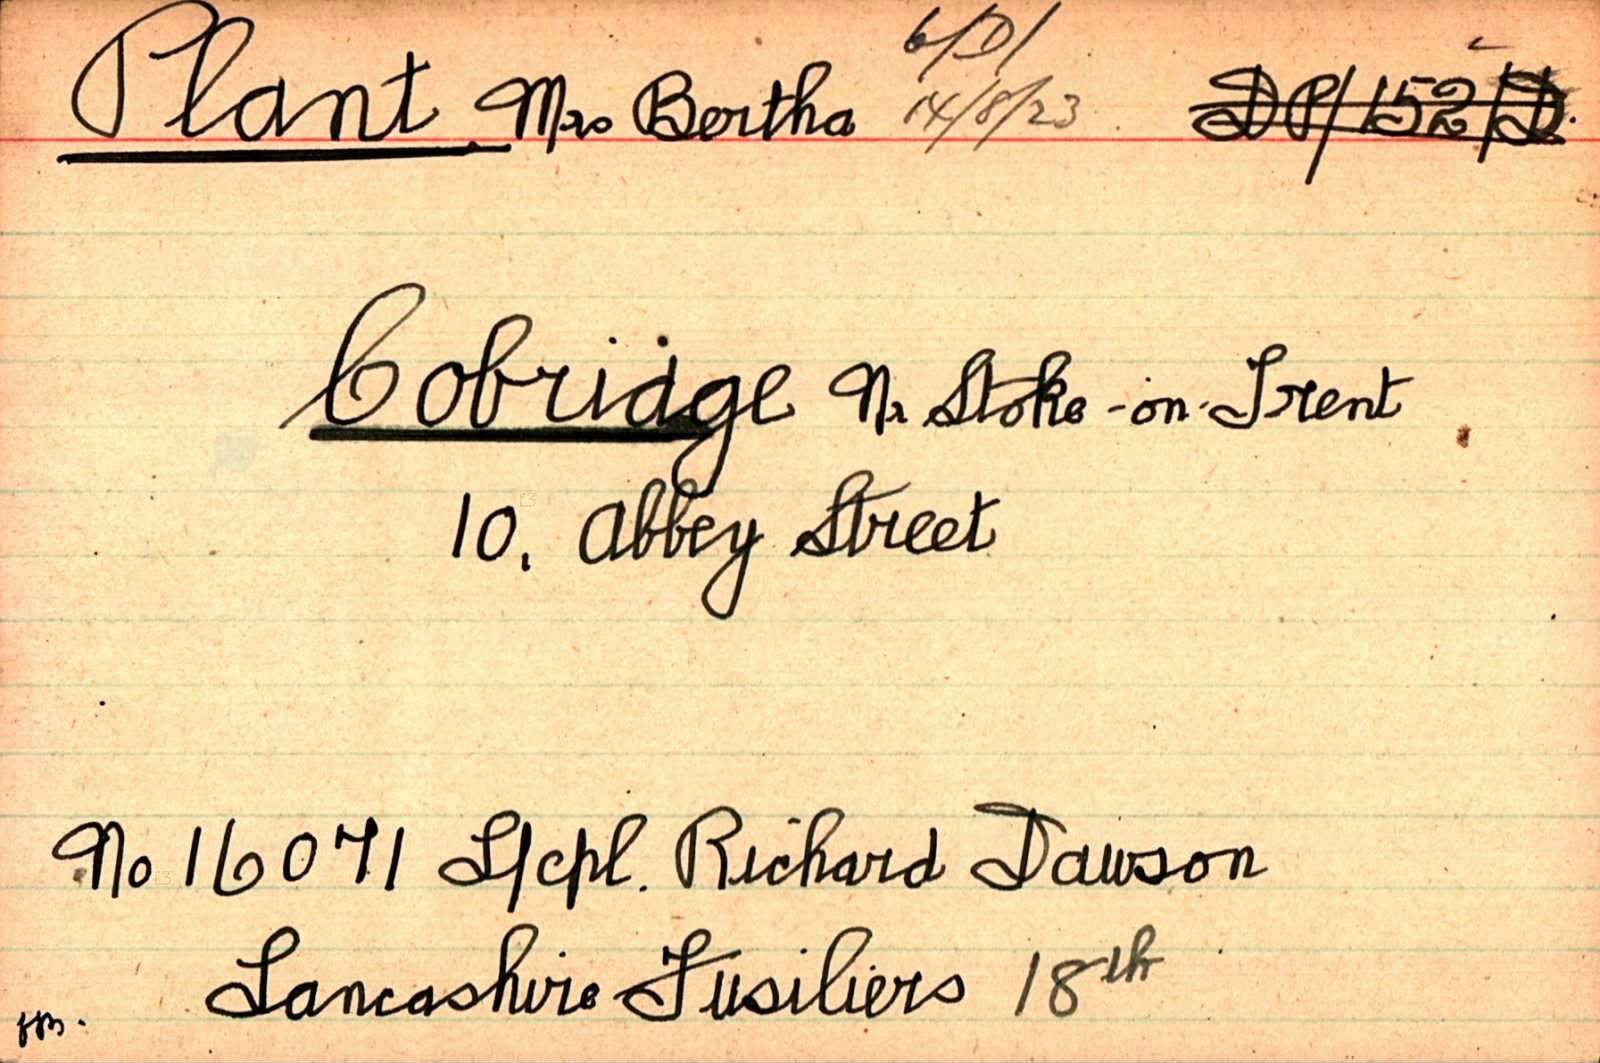 Plant Mrs Bertha 6/D/ 14/8/23 DP/152/D.
Cobridge Nr Stoke-on-Trent
10, Abbey Street
No 16071 L/cpl. Richard Dawson
Lancashire Fusiliers 18th